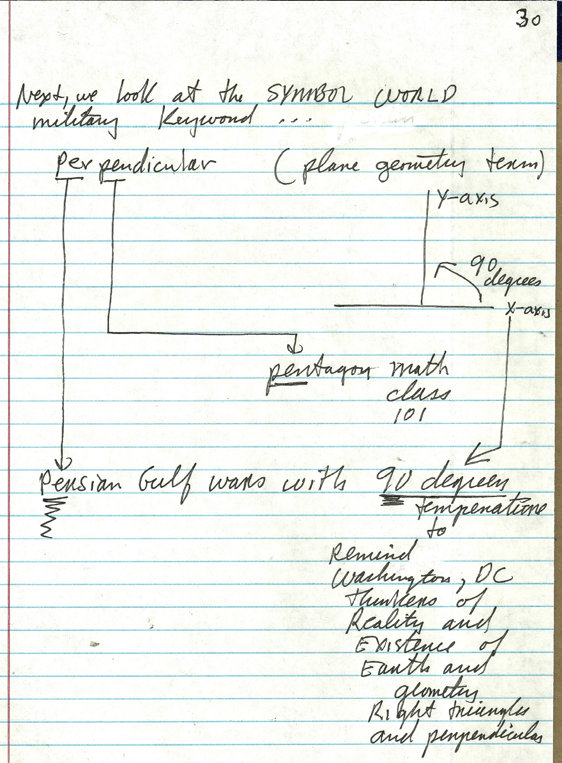 30
Next, we look at the SYMBOL WORLD
military Keyword ...
perpendicular (plane geometry term)
Y-axis
90
degrees
X-axis
pentagon math
class
101
Persian Gulf wars with 90 degrees
temperatures
to
Remind
Washington, DC
thinkers of
Reality and
Existence of
Earth and
geometry
Right triangles
and perpendiculars